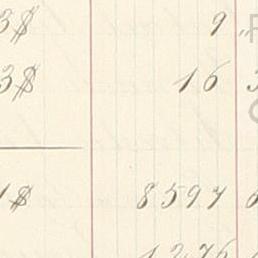 3$ 9
3$ 16
1$ 8597
1276